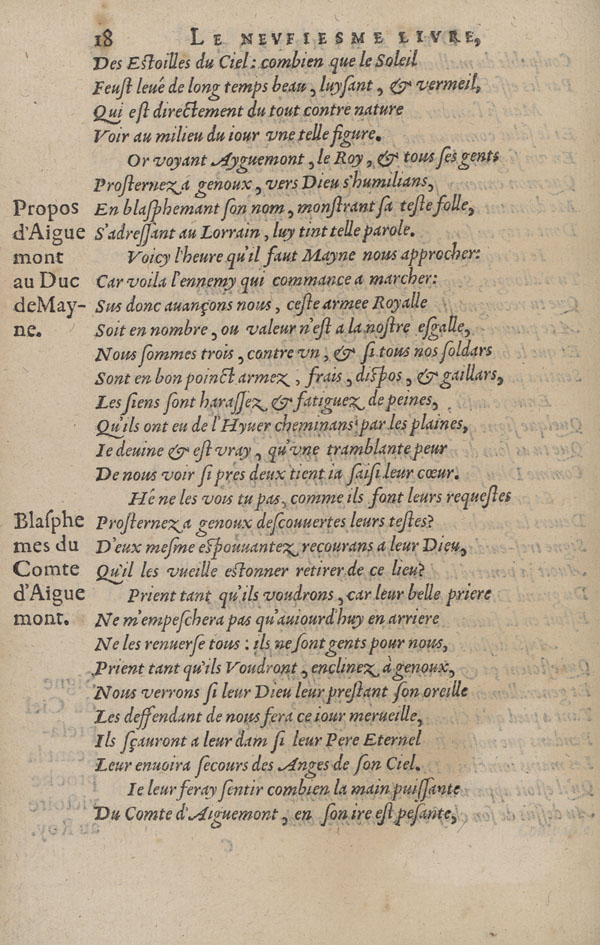 18 LE NEVFIESME LIVRE,
Des Estoilles du Ciel : combien que le Soleil
Feust leué de long temps beau, luysant, & vermeil,
Qui est directement du tout contre nature
Voir au milieu du iour vne telle figure.
Or voyant Ayguemont, le Roy, & tous ses gents
Prosternez a genoux, vers Dieu s'humilians,
En blasphemant son nom, monstrant sa teste folle,
S'adressant au Lorrain, luy tint telle parole.
Propos
d'Aigue
mont
au Duc
de May-
ne.
Voicy l'heure qu'il faut Mayne nous approcher:
Car voila l'ennemy qui commance a marcher:
Sus donc auançons nous, ceste armee Royalle
Soit en nombre, ou valeur n'est a la nostre esgalle,
Nous sommes trois, contre vn, & si tous nos soldars
Sont en bon poinct armez, frais, dispos, & gaillars,
Les siens sont harassez & fatiguez de peines,
Qu'ils ont eu de l'Hyuer cheminans par les plaines,
Ie deuine & est vray, qu'vne tramblante peur
De nous voir si pres deux tient ia saisi leur cœur.
Hé ne les vois tu pas, comme ils font leurs requestes
Prosternez a genoux descouuertes leurs testes?
D'eux mesme espouuantez recourans a leur Dieu,
Qu'il les vueille estonner retirer de ce lieu?
Blasphe
mes du
Comte
d'Aigue
mont.
Prient tant qu'ils voudrons, car leur belle priere
Ne m'empeschera pas qu'auiourd'huy en arriere
Ne les renuerse tous : ils ne sont gents pour nous,
Prient tant qu'ils Voudront, enclinez à genoux,
Nous verrons si leur Dieu leur prestant son oreille
Les deffendant de nous fera ce iour merueille,
Ils sçauront a leur dam si leur Pere Eternel
Leur enuoira secours des Anges de son Ciel.
Ie leur feray sentir combien la main puissante
Du Comte d'Aiguemont, en son ire est pesante,